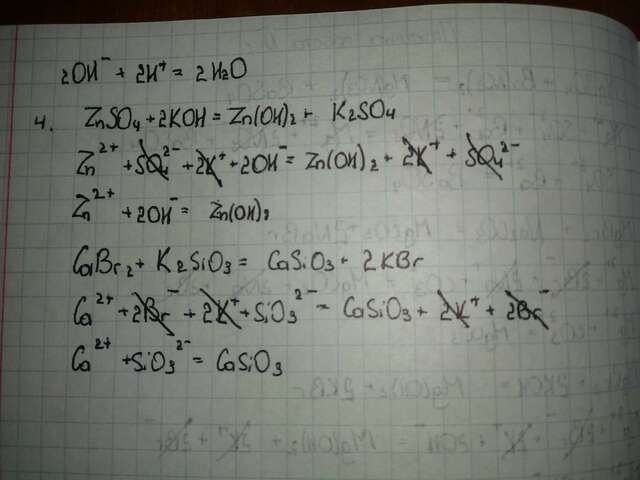 2OH⁻ + 2H⁺ = 2H₂O
4. ZnSO₄ + 2KOH = Zn(OH)₂ + K₂SO₄
Zn²⁺ + SO₄²⁻ + 2K⁺ + 2OH⁻ = Zn(OH)₂ + 2K⁺ + SO₄²⁻
Zn²⁺ + 2OH⁻ = Zn(OH)₂
CaBr₂ + K₂SiO₃ = CaSiO₃ + 2KBr
Ca²⁺ + 2Br⁻ + 2K⁺ + SiO₃²⁻ = CaSiO₃ + 2K⁺ + 2Br⁻
Ca²⁺ + SiO₃²⁻ = CaSiO₃